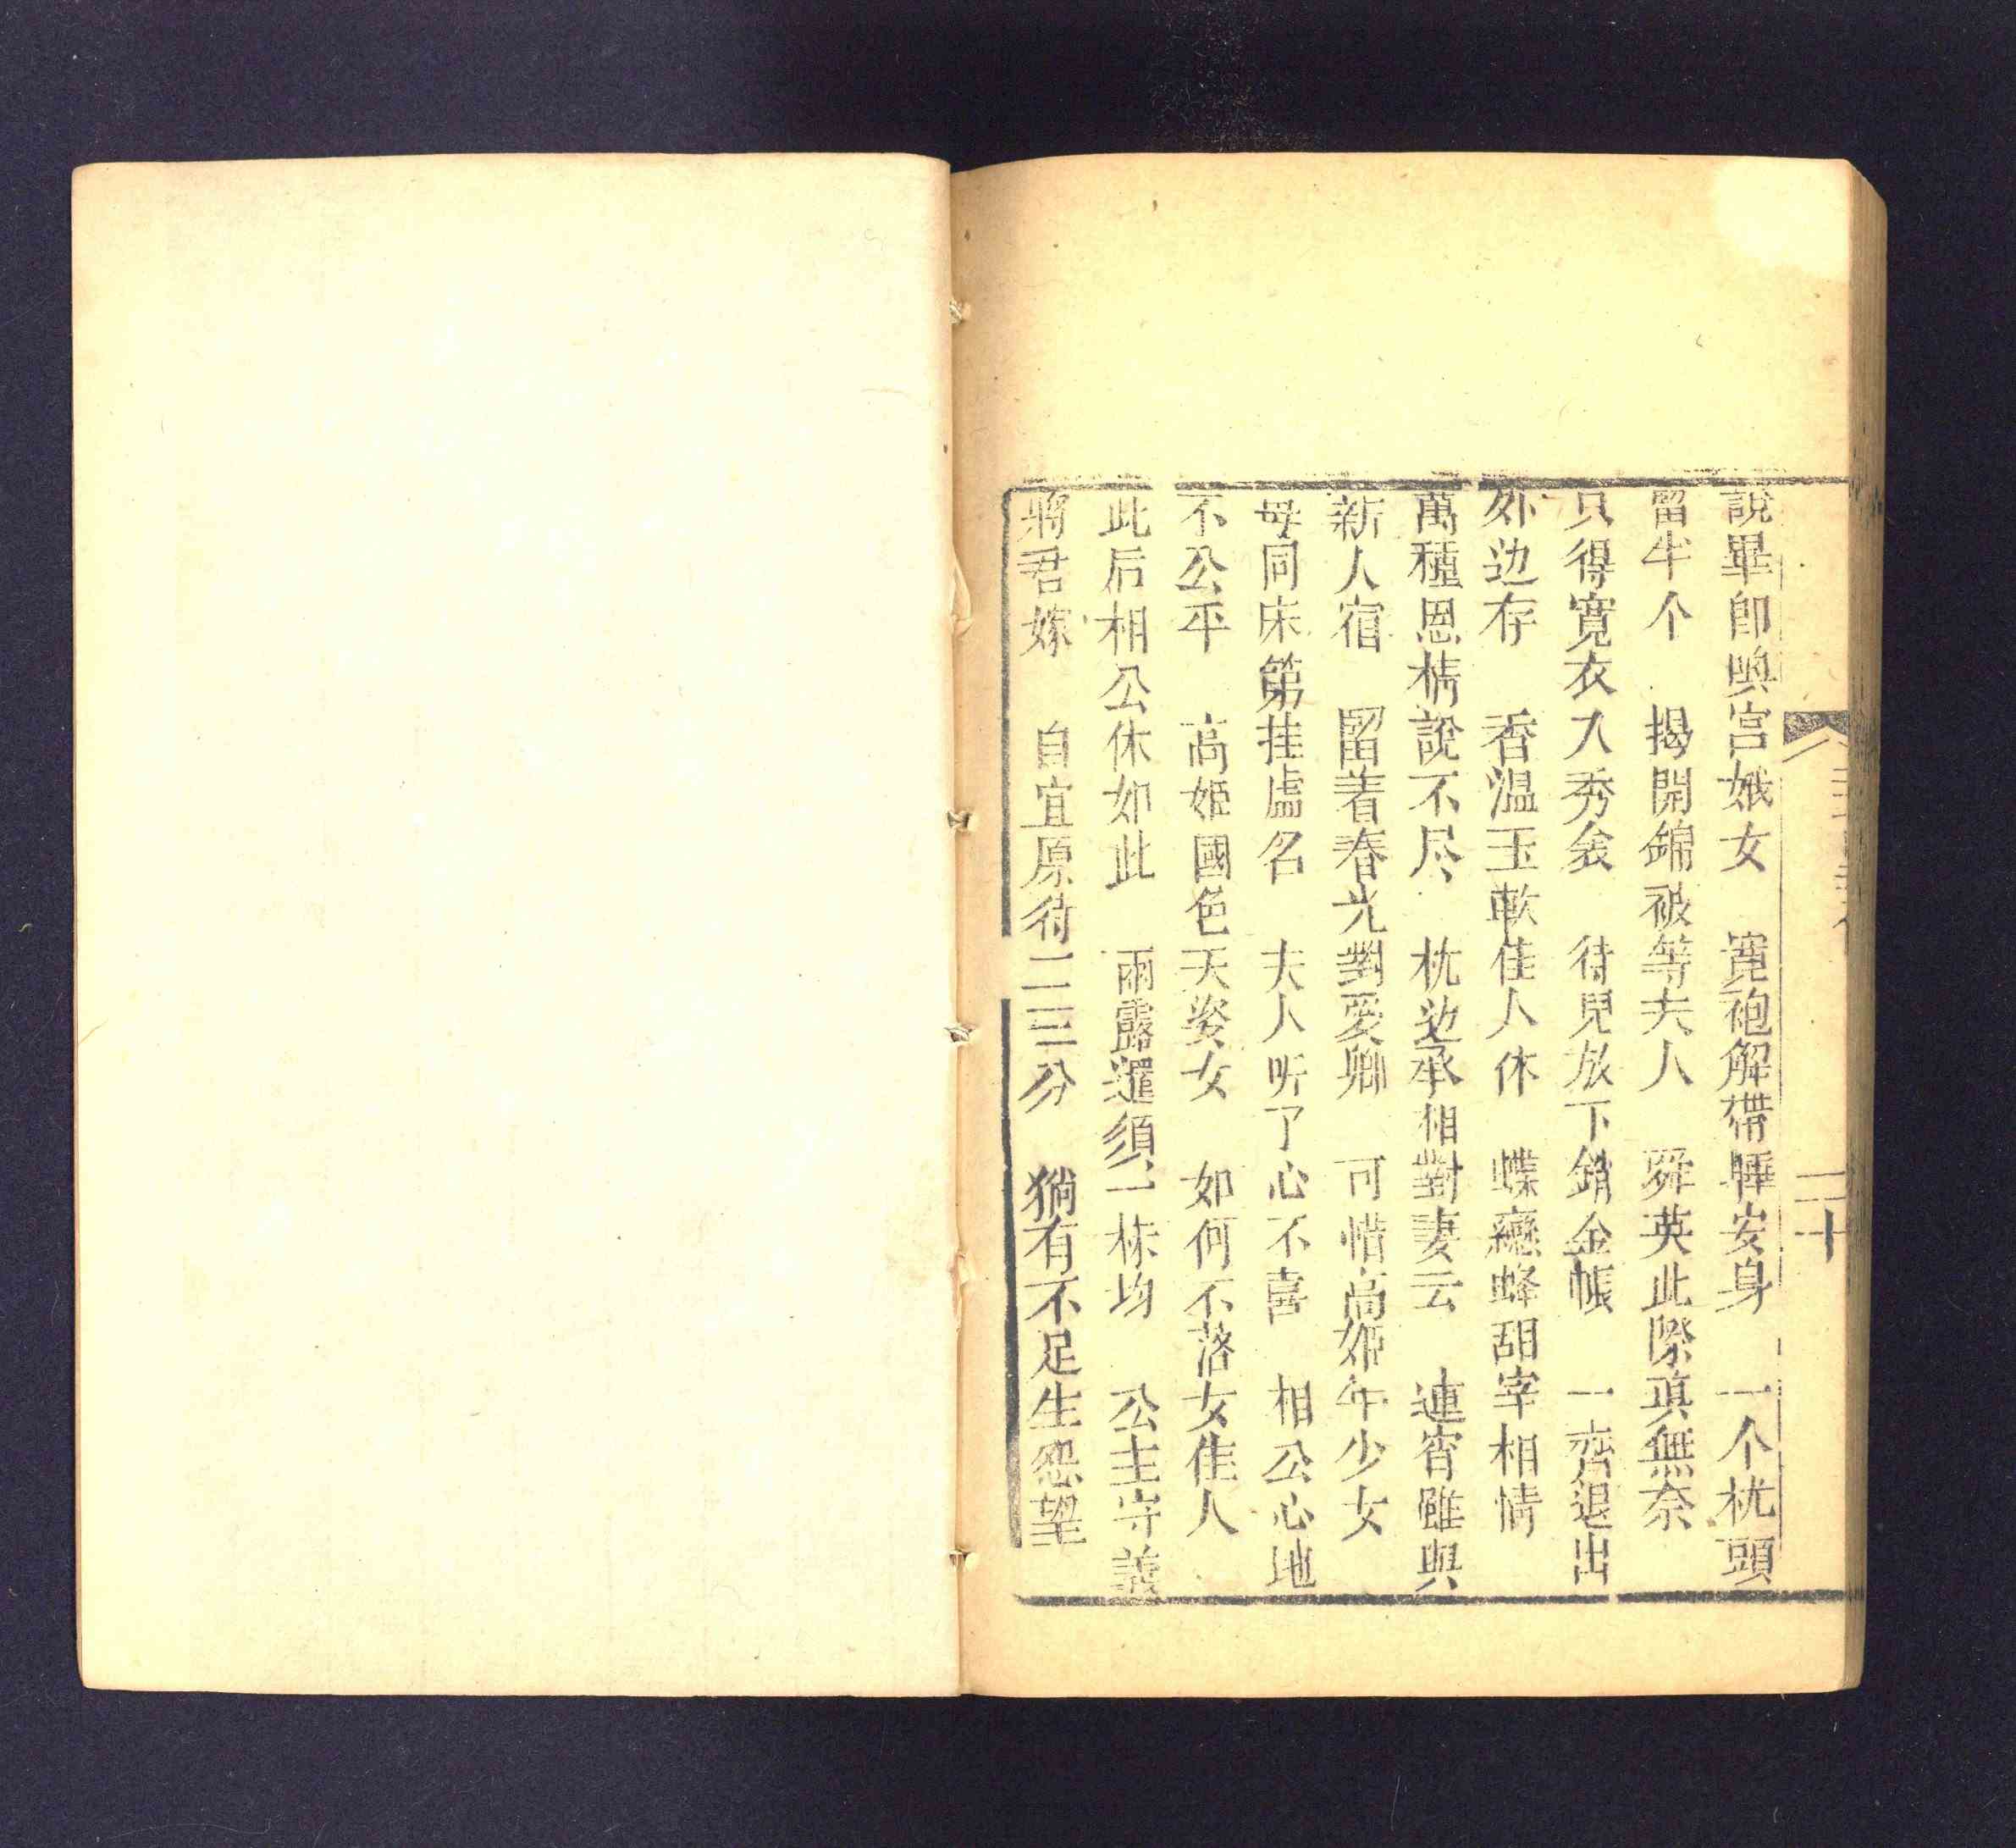 說畢即與宫娥女　寬袍解帶睡安身　一个枕頭
留半个　揭開錦被等夫人　舜英此際真無奈
只得寬衣入秀衾　待兒放下銷金帳　一齊退出
外边存　香温玉軟佳人休　蝶戀蜂甜宰相情
萬種恩情說不尽　枕边承相對妻云　連宵雖與
新人宿　留着春光對愛卿　可惜高姬年少女
每同床第挂虛名　夫人听了心不喜　相公心地
不公平　高姬國色天姿女　如何不落女佳人
此后相公休如此　雨露還須一様均　公主守義
將君嫁　自宜原待二三分　猶有不足生怨望
二十